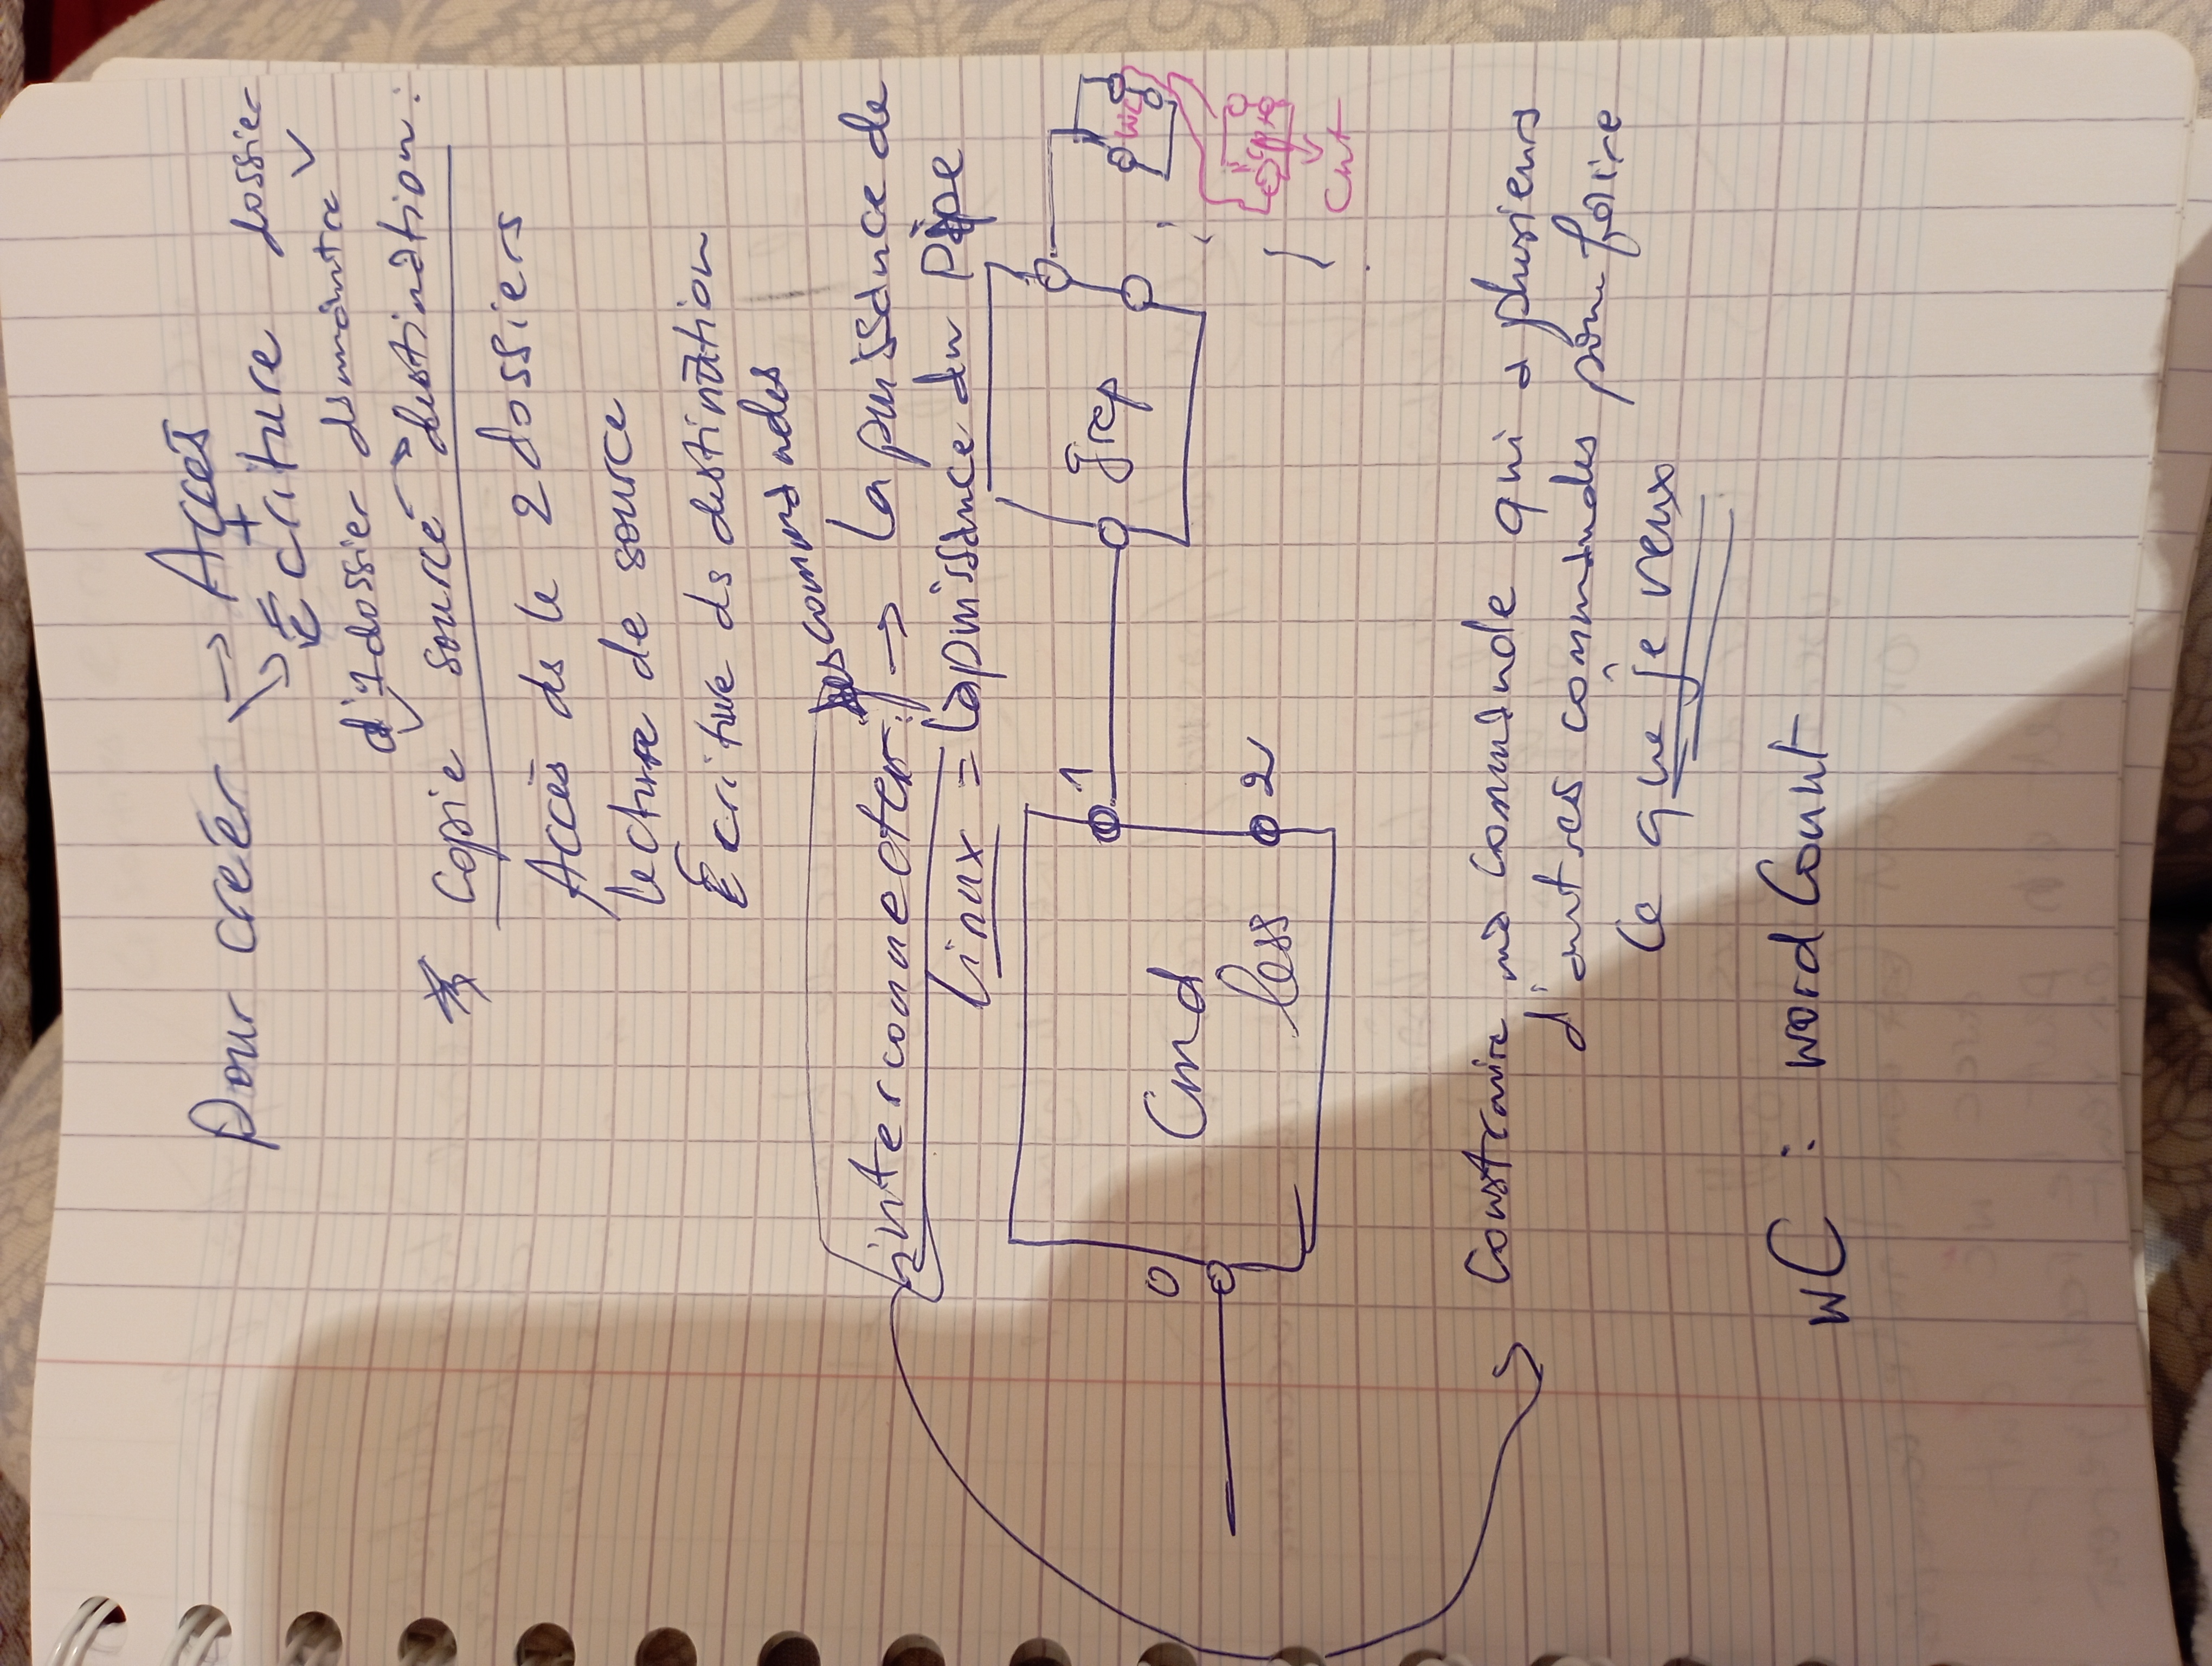 Pour créer → Accès
+
Écriture dossier
d'1 dossier ds un autre
* Copie source → destination :
Accès ds le 2 dossiers
lecture de source
Écriture ds destination
des commandes
interconnecter → la puissance de
linux = la puissance du Pipe
Cmd
less
0
1
2
grep
wc
Cut
Construire ma commande qui a plusieurs
d'autres commandes pour faire
Ce que je veux
wC : word Count